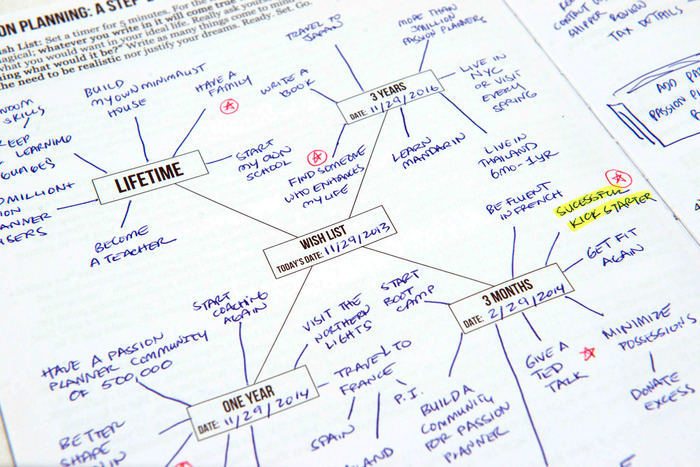 ON PLANNING: A STEP
ish List: Set a timer for 5 minutes. For the
magical; whatever you write in it will come true
what you want in your ideal life. Really ask yourse
thing what would it be?" Write as many things come to mind
the need to be realistic nor justify your dreams. Ready. Set. Go.
SHIPPER REVIEW
TAX DETAILS
ADD
PASSION
TRAVEL TO
JAPAN
MORE THAN
PASSION PLANNERS
WRITE A
BOOK
3 YEARS
DATE: 11/29/2016
LIVE IN
NYC
OR VISIT
EVERY
SPRING
FIND SOMEONE
WHO ENHANCES
MY LIFE
LEARN
MANDARIN
LIVE IN
THAILAND
6MO-1YR
BUILD
MY OWN MINIMALIST
HOUSE
HAVE A
FAMILY
SKILLS
KEEP
LEARNING
LIFETIME
START
MY OWN
SCHOOL
MILLION+
BECOME
A TEACHER
WISH LIST
TODAY'S DATE: 11/29/2013
BE FLUENT
IN FRENCH
SUCESSFUL
KICKSTARTER
GET FIT
AGAIN
START
BOOT
CAMP
3 MONTHS
DATE: 2/29/2014
GIVE A
TED
TALK
MINIMIZE
POSSESSIONS
DONATE
EXCESS
BUILD A
COMMUNITY
FOR PASSION
PLANNER
START
COACHING
AGAIN
VISIT THE
NORTHERN
LIGHTS
HAVE A PASSION
PLANNER COMMUNITY
OF 500,000
TRAVEL TO
FRANCE
P.I.
SPAIN
ONE YEAR
DATE: 11/29/2014
BETTER
SHAPE